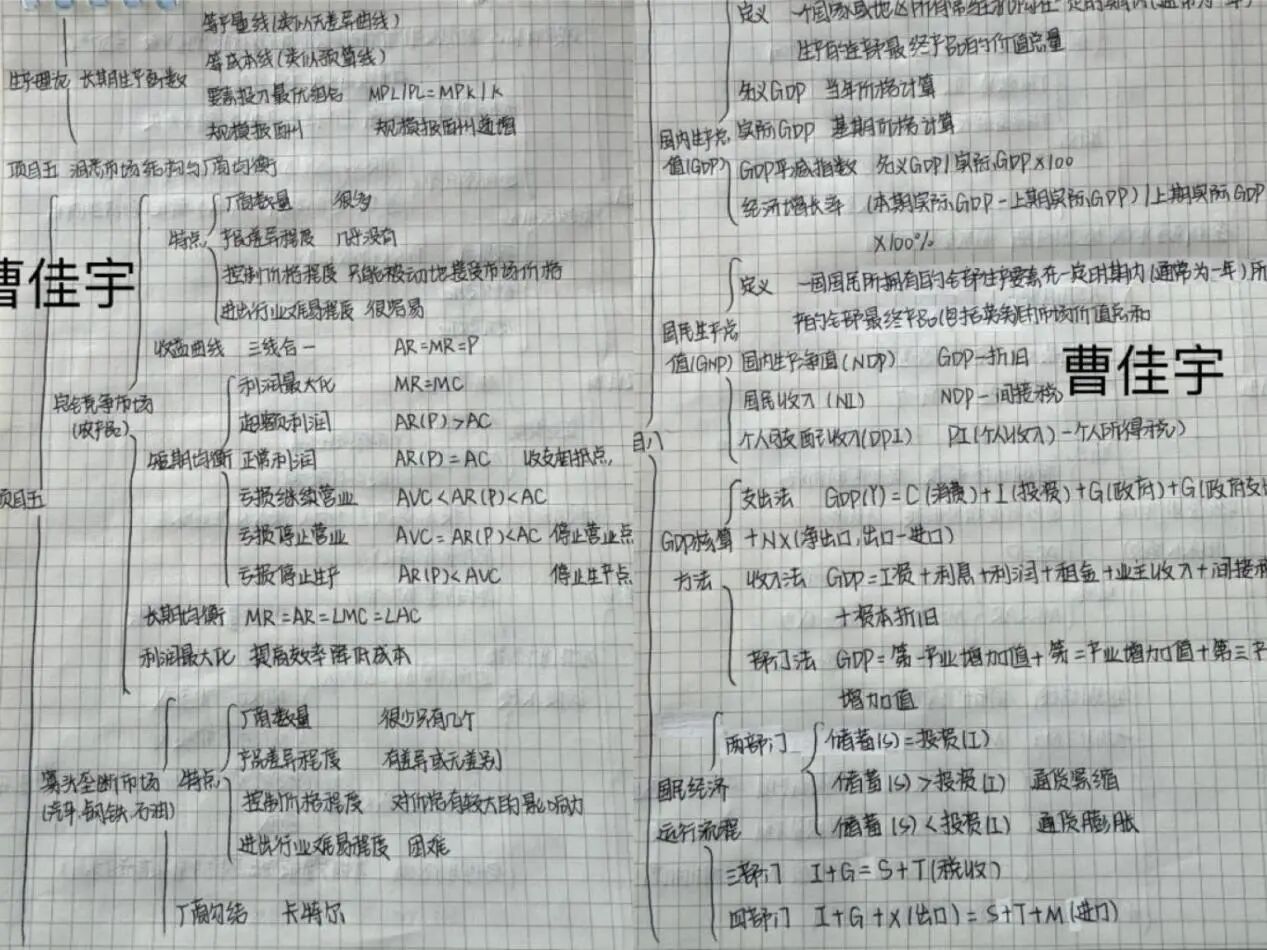 等产量线(类似无差异曲线)
等成本线(类似预算线)
生产理论 长期生产函数
要素投入最优组合 MPL/PL=MPK/K
规模报酬 规模报酬递增
项目五 洞悉市场结构与厂商均衡
厂商数量 很多
特点 产品差异程度 几乎没有
控制价格程度 只能被动地接受市场价格
曹佳宇
进出行业难易程度 很容易
收益曲线 三线合一 AR=MR=P
利润最大化 MR=MC
完全竞争市场
(农产品)
超额利润 AR(P)>AC
短期均衡 正常利润 AR(P)=AC 收支相抵点
项目五
亏损继续营业 AVC<AR(P)<AC
亏损停止营业 AVC=AR(P)<AC 停止营业点
亏损停止生产 AR(P)<AVC 停止生产点
长期均衡 MR=AR=LMC=LAC
利润最大化 提高效率降低成本
厂商数量 很少只有几个
特点 产品差异程度 有差异或无差别
寡头垄断市场
(汽车、钢铁、石油)
控制价格程度 对价格有较大的影响力
进出行业难易程度 困难
厂商勾结 卡特尔
定义 一个国家或地区所有常驻
生产的全部最终产品的价值总量
名义GDP 当年价格计算
国内生产总
值(GDP)
实际GDP 基期价格计算
GDP平减指数 名义GDP/实际GDP×100
经济增长率 (本期实际GDP-上期实际GDP)/上期实际GDP
×100%
定义 一国国民所拥有的全部生产要素在一定时期内(通常为一年)所
产的全部最终产品(包括劳务)的市场价值总和
国民生产总
值(GNP)
国内生产净值(NDP) GDP-折旧
曹佳宇
国民收入(NI) NDP-间接税
目八
个人可支配收入(DPI) PI(个人收入)-个人所得税)
支出法 GDP(Y)=C(消费)+I(投资)+G(政府)+G(政府支出
GDP核算
方法
+NX(净出口,出口-进口)
收入法 GDP=工资+利息+利润+租金+业主收入+间接税
+资本折旧
部门法 GDP=第一产业增加值+第二产业增加值+第三产
增加值
两部门 储蓄(S)=投资(I)
国民经济
运行流程
储蓄(S)>投资(I) 通货紧缩
储蓄(S)<投资(I) 通货膨胀
三部门 I+G=S+T(税收)
四部门 I+G+X(出口)=S+T+M(进口)